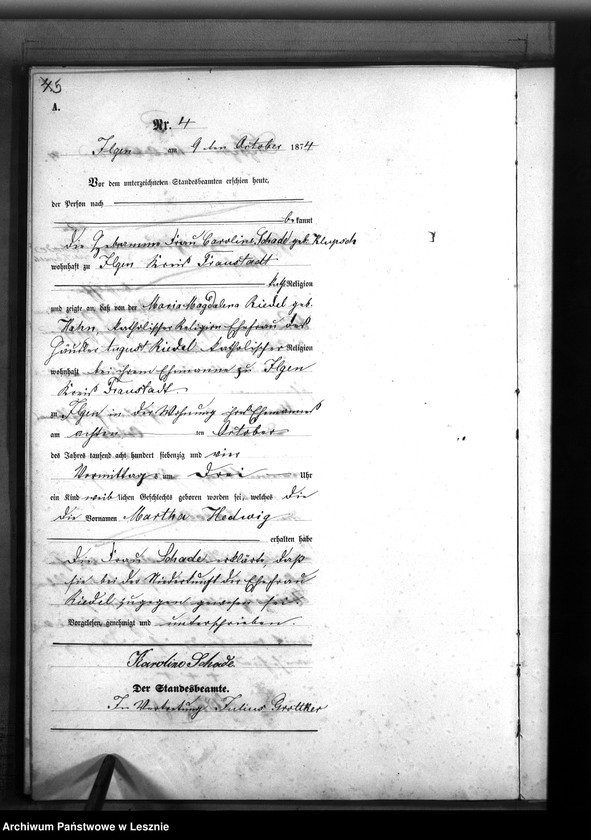 45
A.
Nr. 4
Ilgen am 9 ten October 1874
Vor dem unterzeichneten Standesbeamten erschien heute,
der Person nach
bekannt
die Hebamme Frau Caroline Schade geb. Klupsch
wohnhaft zu Ilgen Kreis Fraustadt
kath. Religion
und zeigte an, daß von der Maria Magdalena Riedel geb.
Hahn, katholischer Religion Ehefrau des
Häusler August Riedel katholischer Religion
wohnhaft bei ihrem Ehemanne zu Ilgen
Kreis Fraustadt
zu Ilgen in der Wohnung ihres Ehemannes
am achten ten October
des Jahres tausend acht hundert siebenzig und vier
Vormittags um Drei Uhr
ein Kind weiblichen Geschlechts geboren worden sei, welches die
die Vornamen Martha Hedwig
erhalten habe
Die Frau Schade erklärte, daß
sie bei der Niederkunft der Ehefrau
Riedel zugegen gewesen sei.
Vorgelesen, genehmigt und unterschrieben.
Karoline Schade
Der Standesbeamte.
In Vertretung Julius Grottker
Archiwum Państwowe w Lesznie